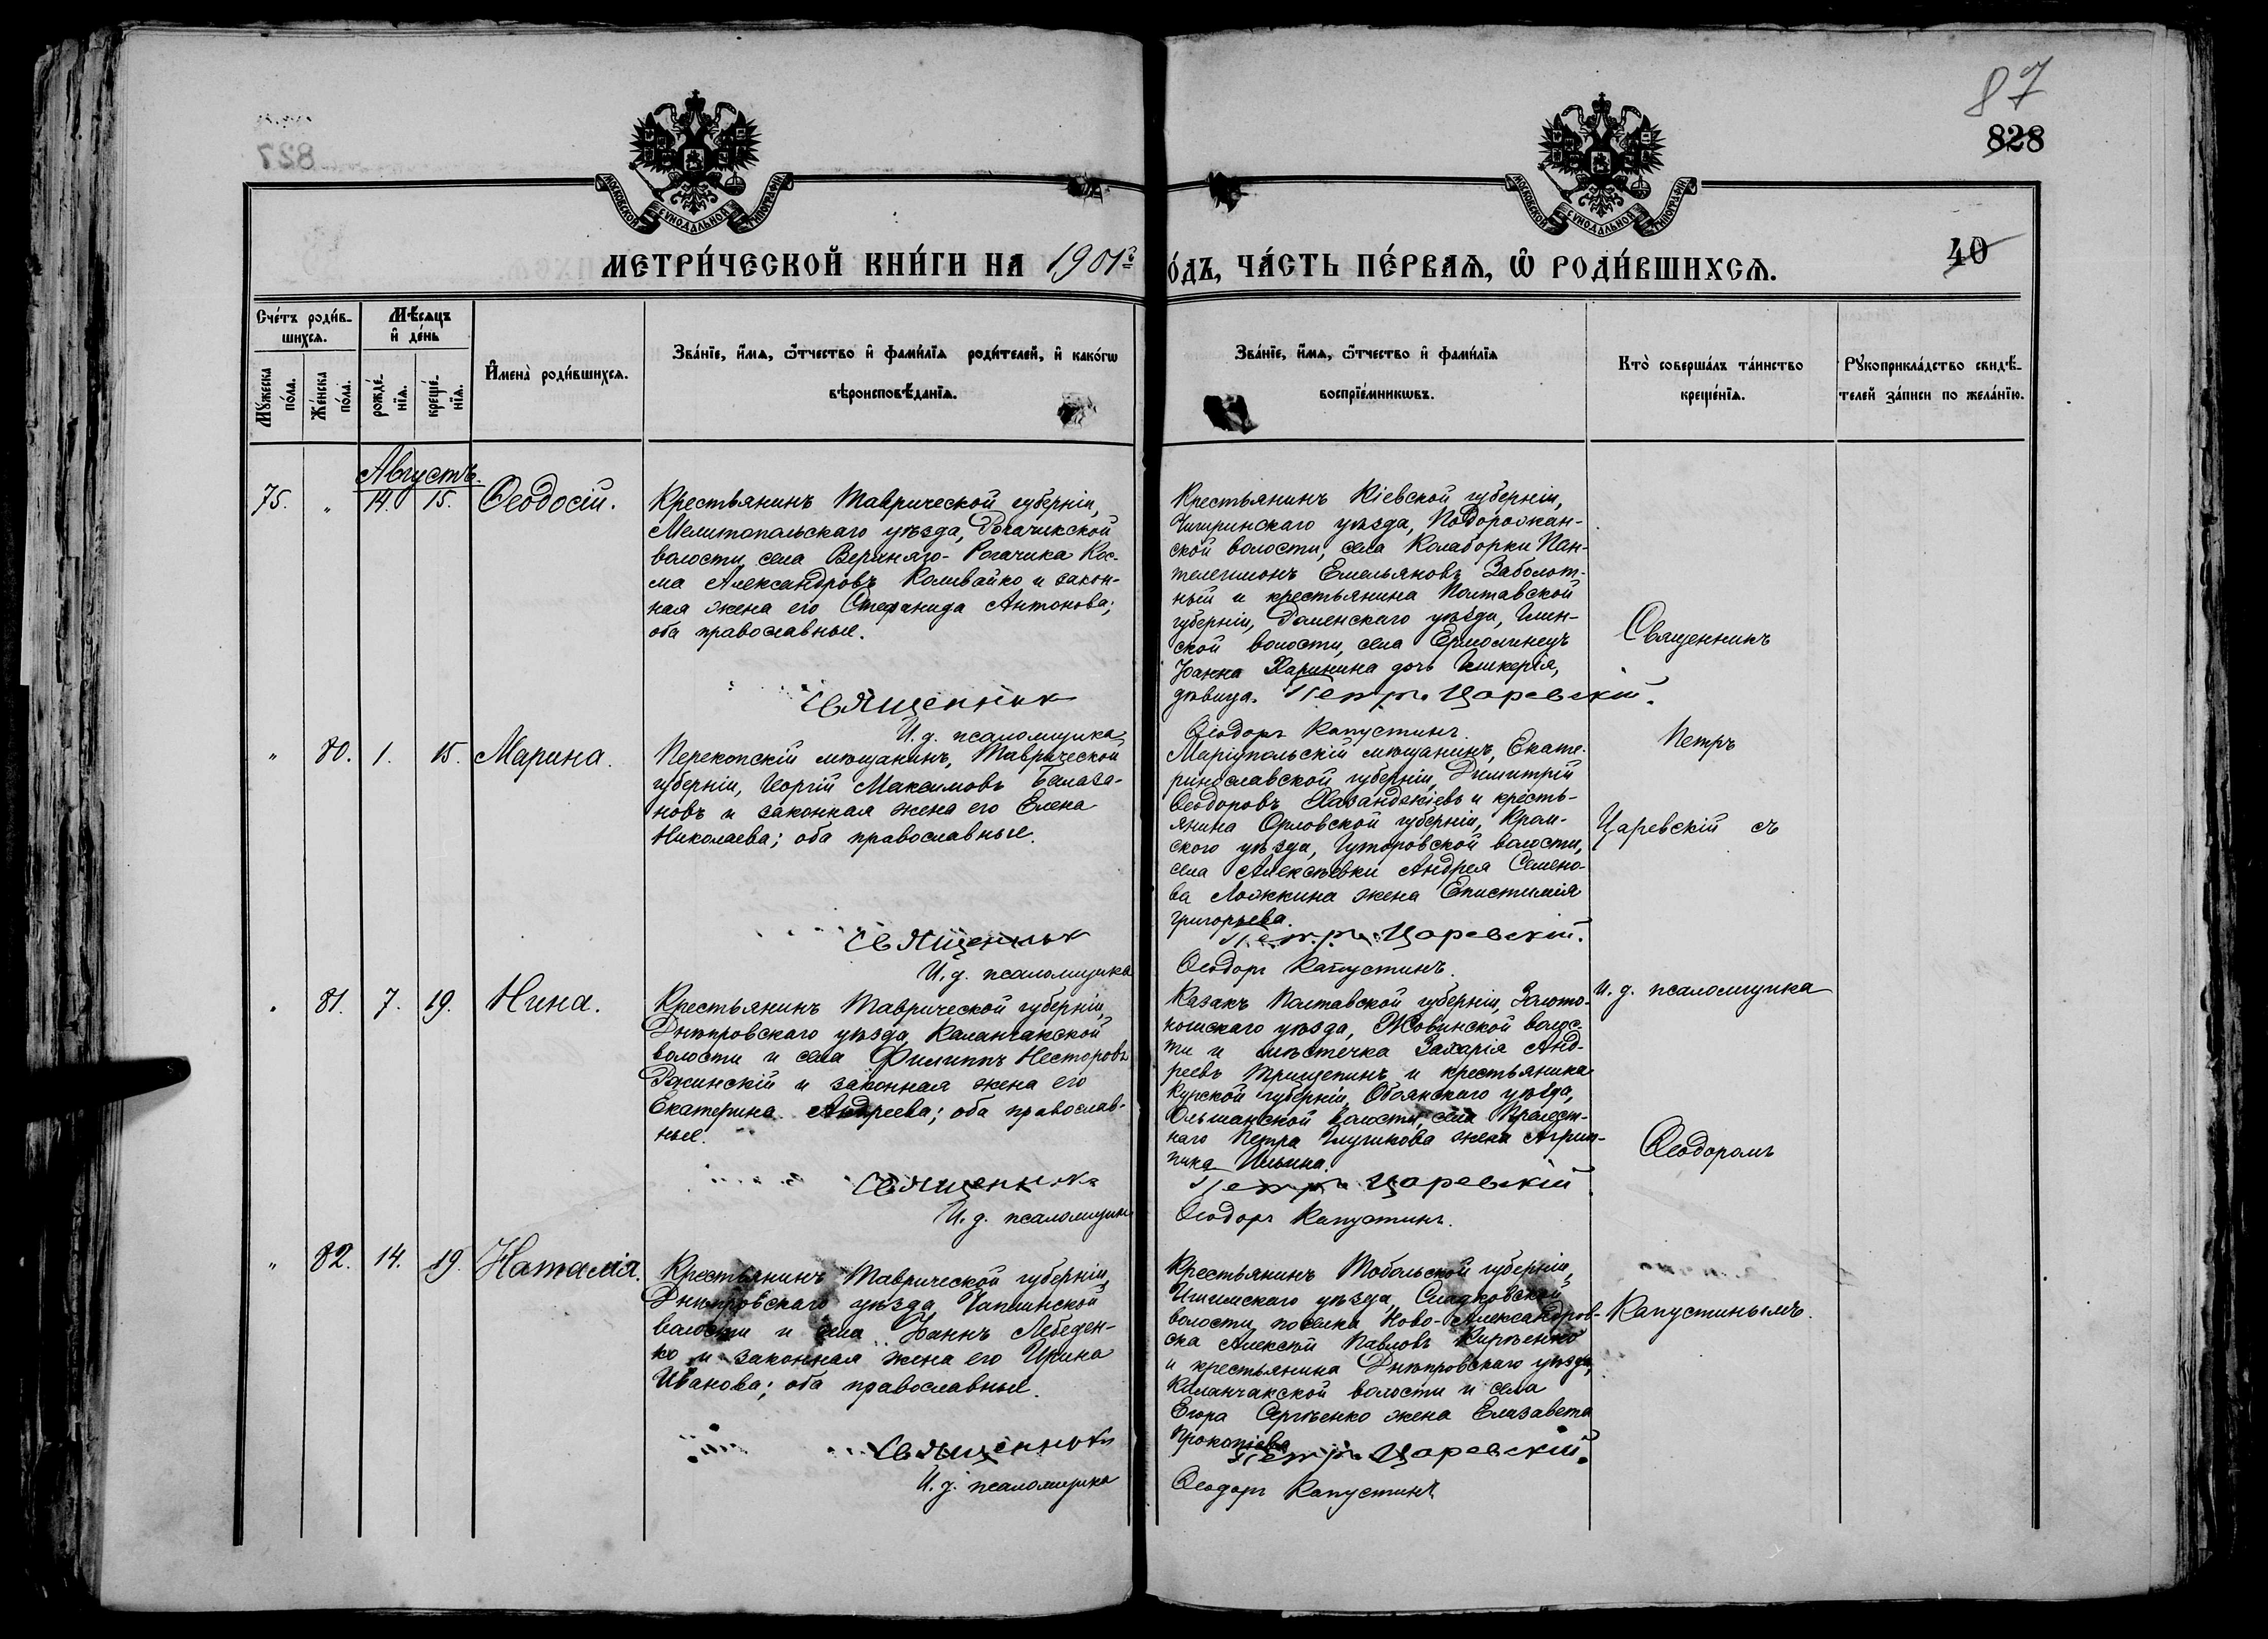 87
828
827
МОСКОВСКОЙ СѴНОДАЛЬНОЙ ТИПОГРАФІИ
МОСКОВСКОЙ СѴНОДАЛЬНОЙ ТИПОГРАФІИ
МЕТРИ́ЧЕСКОЙ КНИ́ГИ НА 1901 г
О́ДЪ, ЧА́СТЬ ПЕ́РВАѦ, Ѽ РОДИ́ВШИХСѦ.
40
Сче́тъ роди́в-
шихсѧ.
Мѣ́сѧцъ
и҆ де́нь
Мꙋ́жеска
по́ла.
Же́нска
по́ла.
рожде́-
нїѧ.
креще́-
нїѧ.
И҆мена̀ роди́вшихсѧ.
Зва́нїе, и҆́мѧ, ѻ҆́тчество и҆ фами́лїѧ роди́телей, и҆ како́гѡ
вѣроисповѣ́данїѧ.
Зва́нїе, и҆́мѧ, ѻ҆́тчество и҆ фами́лїѧ
воспрїе́мникѡвъ.
Кто̀ соверша́лъ та́инство
креще́нїѧ.
Рꙋкоприкла́дство свидѣ́-
телей за́писи по жела́нїю.
Августъ.
75. " 14. 15. Ѳеодосій.
Крестьянинъ Таврической губерніи,
Мелитопольскаго уѣзда, Рогачикской
волости, села Верхняго-Рогачика Кос-
ма Александровъ Коливайко и закон-
ная жена его Стефанида Антонова;
оба православные.
Священник
И. д. псаломщика
Крестьянинъ Кіевской губерніи,
Чигиринскаго уѣзда, Подорожан-
ской волости, села Колаборки Пан-
телеимонъ Емельяновъ Заболот-
ный и крестьянина Полтавской
губерніи, Роменскаго уѣзда,
ской волости, села Ермолинецъ
Іоанна Харинина дочь Гликерія,
дѣвица. Петръ Царевскій.
Ѳеодоръ Капустинъ.
" 80. 1. 15. Марина.
Перекопскій мѣщанинъ, Таврической
губерніи, Георгій Максимовъ Балаба-
новъ и законная жена его Елена
Николаева; оба православные.
Священник
И. д. псаломщика
Маріупольскій мѣщанинъ, Екате-
ринославской губерніи, Димитрій
Ѳеодоровъ Хазанджіевъ и кресть-
янина Орловской губерніи, Кром-
ского уѣзда, Гуторовской волости,
села Алексѣевки Андрея Семено-
ва Ложкина жена Епистимія
Григорьева.
Петръ Царевскій.
Ѳеодоръ Капустинъ.
" 81. 7. 19. Нина.
Крестьянинъ Таврической губерніи,
Днѣпровскаго уѣзда, Каланчакской
волости и села Филиппъ Несторовъ
Ржинскій и законная жена его
Екатерина Андреева; оба православ-
ные.
Священника
И. д. псаломщик
Казакъ Полтавской губерніи, Золото-
ношскаго уѣзда, Жовнинской волос-
ти и мѣстечка Захарія Анд-
реевъ Трищепинъ и крестьянина
Курской губерніи, Обоянскаго уѣзда,
Ольшанской волости, села Прелест-
наго Петра жена Агрип-
пина Ильина.
Петръ Царевскій
Ѳеодоръ Капустинъ.
" 82. 14. 19. Наталія.
Крестьянинъ Таврической губерніи,
Днѣпровскаго уѣзда, Чаплинской
волости и села Іоаннъ Лебеден-
ко и законная жена его Ирина
Иванова; оба православные.
Священник
И. д. псаломщика
Крестьянинъ Тобольской губерніи,
Ишимскаго уѣзда, Сладковской
волости, поселка Ново-Александров-
ска Алексѣй Павловъ Кирѣенко
и крестьянина Днѣпровскаго уѣзда,
Каланчакской волости и села
Егора Сергѣенко жена Елизавета
Прокопіева
Петръ Царевскій.
Ѳеодоръ Капустинъ
Священникъ
Петръ
Царевскій съ
И. д. псаломщика
Ѳеодоромъ
Капустинымъ.